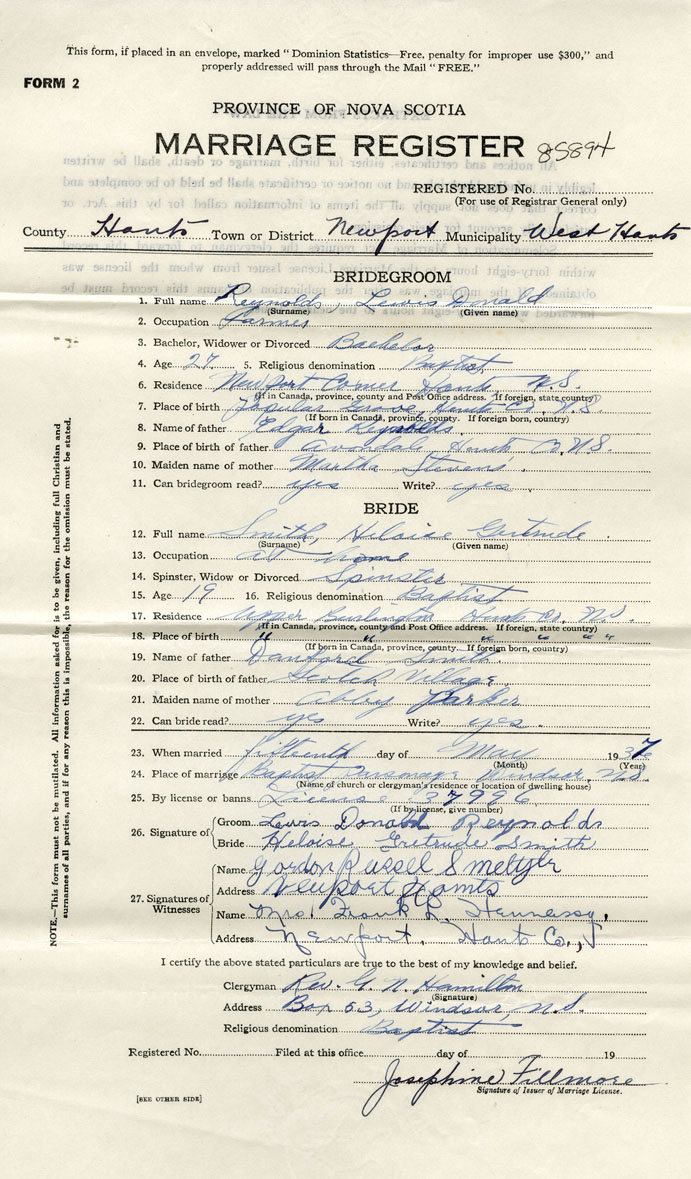 This form, if placed in an envelope, marked “ Dominion Statistics—Free, penalty for improper use $300,” and
properly addressed will pass through the Mail “ FREE.”
FORM 2
PROVINCE OF NOVA SCOTIA
MARRIAGE REGISTER 85894
REGISTERED No.
(For use of Registrar General only)
County Hants Town or District Newport Municipality West Hants
BRIDEGROOM
1. Full name Reynolds, Lewis Donald
(Surname) (Given name)
2. Occupation Farmer
3. Bachelor, Widower or Divorced Bachelor
4. Age 27 5. Religious denomination Baptist
6. Residence Newport Corner Hants N.S.
(If in Canada, province, county and Post Office address. If foreign, state country)
7. Place of birth Grove, Hants Co., N.S.
(If born in Canada, province, county. If foreign born, country)
8. Name of father Edgar Reynolds
9. Place of birth of father Avondale, Hants Co. N.S.
10. Maiden name of mother Martha Stevens
11. Can bridegroom read? yes Write? yes
BRIDE
12. Full name Smith, Heloise Gertrude
(Surname) (Given name)
13. Occupation at home
14. Spinster, Widow or Divorced Spinster
15. Age 19 16. Religious denomination Baptist
17. Residence Upper Burlington Hants Co. N.S.
(If in Canada, province, county and Post Office address. If foreign, state country)
18. Place of birth " " " " "
(If born in Canada, province, county. If foreign born, country)
19. Name of father Smith
20. Place of birth of father Scotch Village
21. Maiden name of mother Abby Parker
22. Can bride read? yes Write? yes
23. When married fifteenth day of May 1937
(Month) (Year)
24. Place of marriage Baptist Parsonage Windsor, N.S.
(Name of church or clergyman's residence or location of dwelling house)
25. By license or banns License 37996
(If by license, give number)
26. Signature of Groom Lewis Donald Reynolds
Bride Heloise Gertrude Smith
27. Signatures of Witnesses Name Gordon Russel Smeltzer
Address Newport Hants
Name Mrs. Frank L. Hennessy,
Address Newport, Hants Co.,
I certify the above stated particulars are true to the best of my knowledge and belief.
Clergyman Rev. G. N. Hamilton
(Signature)
Address Box 53, Windsor, N.S.
Religious denomination Baptist
Registered No. Filed at this office day of 19
Josephine Fillmore
Signature of Issuer of Marriage License.
[SEE OTHER SIDE]
NOTE.—This form must not be mutilated. All information asked for is to be given, including full Christian and
surnames of all parties, and if for any reason this is impossible, the reason for the omission must be stated.